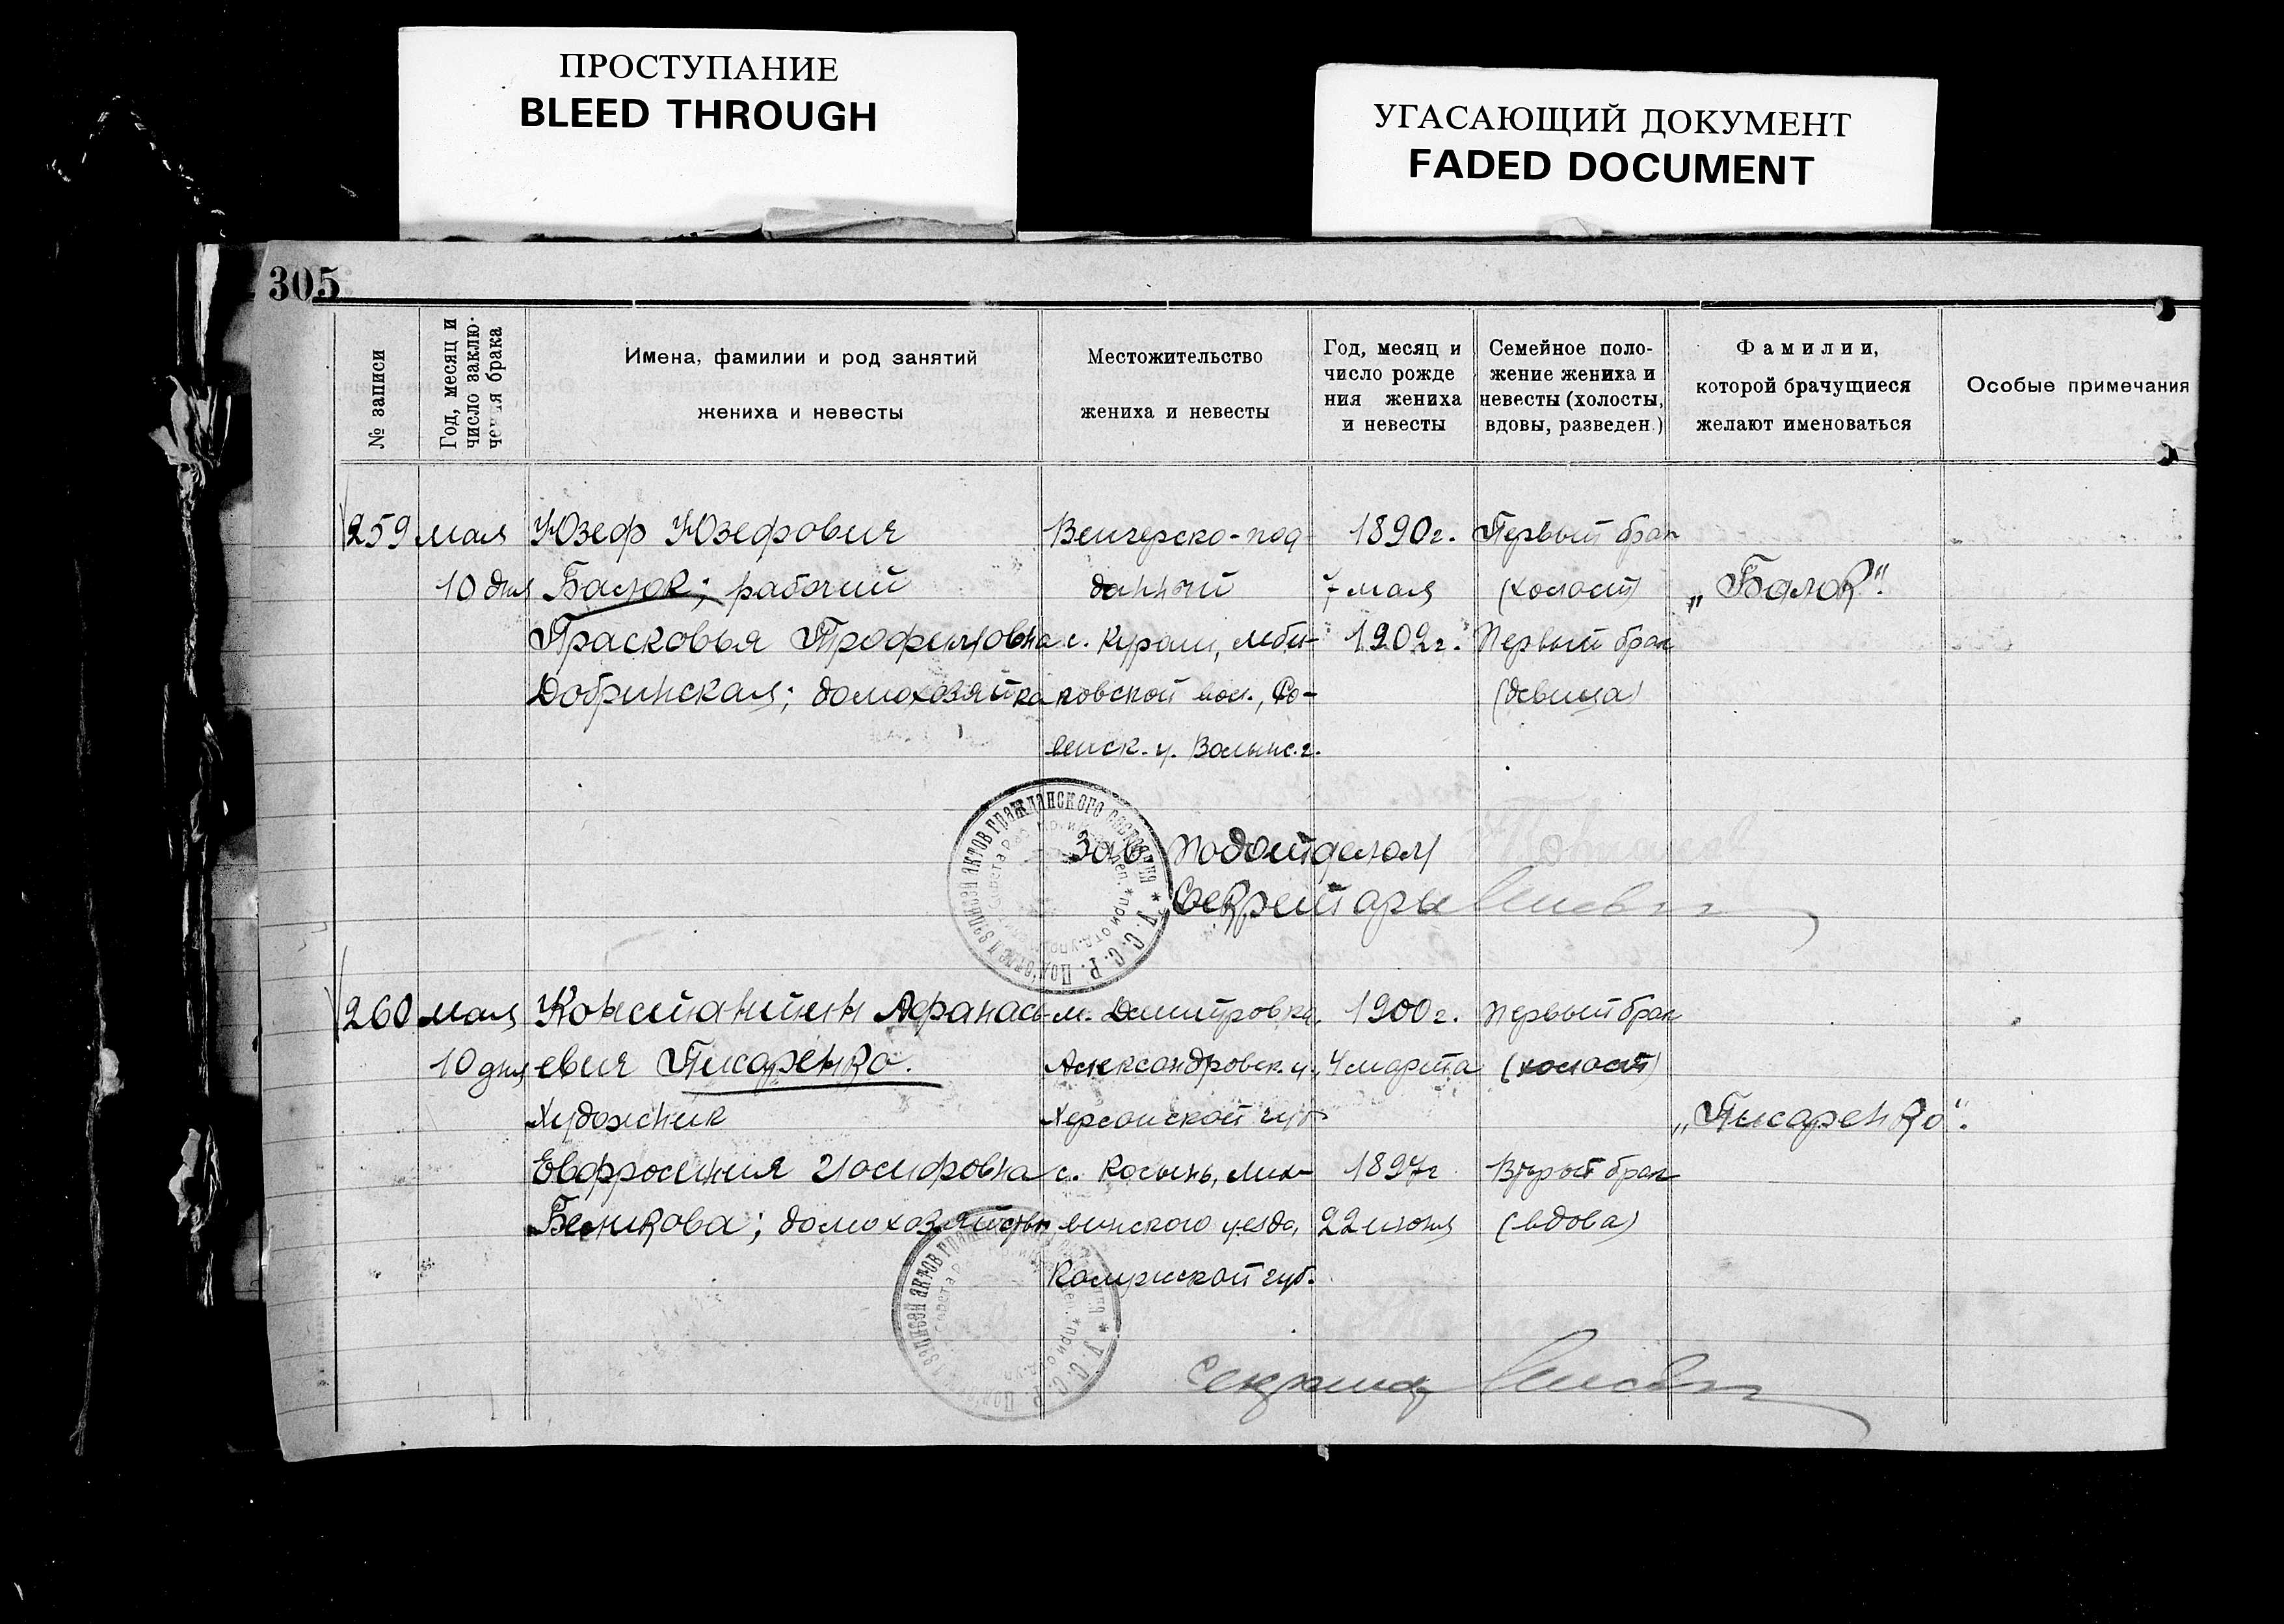 ПРОСТУПАНИЕ
BLEED THROUGH
УГАСАЮЩИЙ ДОКУМЕНТ
FADED DOCUMENT
305
№ записи
Год, месяц и число заклю- чения брака
Имена, фамилии и род занятий жениха и невесты
Местожительство жениха и невесты
Год, месяц и число рожде ния жениха и невесты
Семейное поло- жение жениха и невесты (холосты, вдовы, разведен.)
Фамилии, которой брачущиеся желают именоваться
Особые примечания
259 мая Юзеф Юзефович Венгерско-под- 1890г. Первый брак
10 дня Балок; рабочий данный 7 мая (холост) „Балок".
Прасковья Трофимовна с. Кураш, 1902г. Первый брак
Добринская; домохозяйка ковской вол., Ро- (девица)
венск. у. Волынс. г.
Зав. Подотделом
Секретарь
260 мая Константин Афанась- м. Дмитровка, 1900г. Первый брак
10 дня евич Писаренко. Александровск. у., 4 марта (холост)
Художник Херсонской губ. „Писаренко".
Евфросиния Иосифовна с. Косынь, 1897г Второй брак
Беликова; винского уезда, 22 июня (вдова)
Калужской губ.
Секретарь